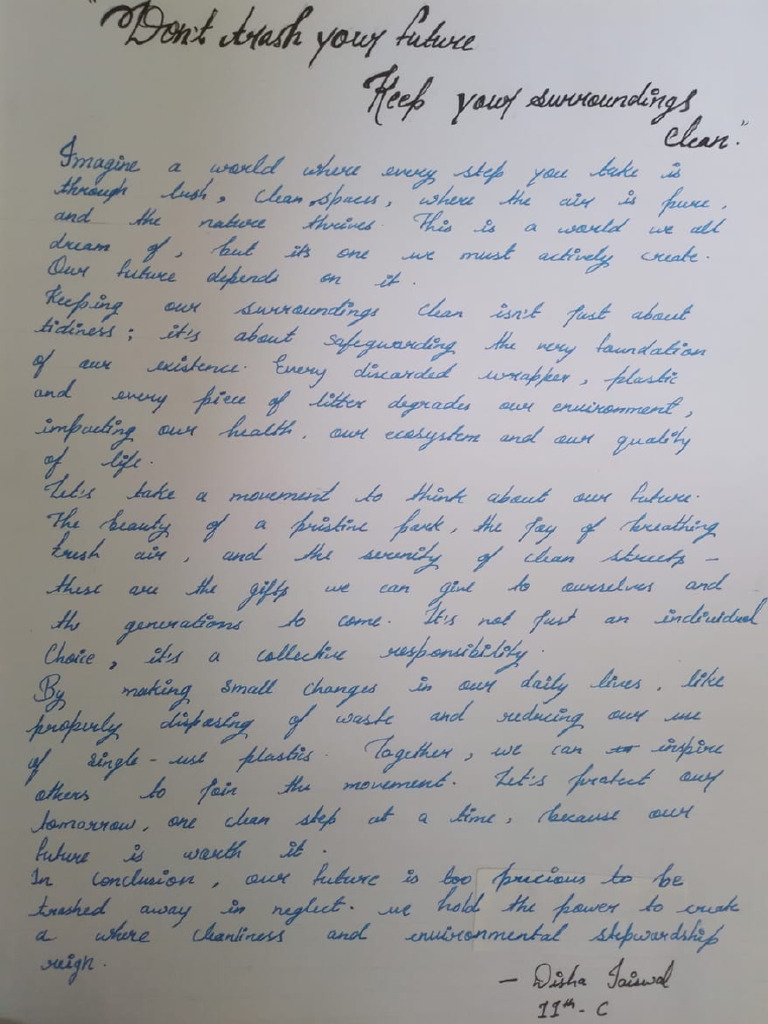 "Don't trash your future
Keep your surroundings
clean."
Imagine a world where every step you take is
through lush, clean spaces, where the air is pure,
and the nature thrives. This is a world we all
dream of, but its one we must actively create.
Our future depends on it.
Keeping our surroundings clean isn't just about
tidiness; it's about safeguarding the very foundation
of our existence. Every discarded wrapper, plastic
and every piece of litter degrades our environment,
impacting our health, our ecosystem and our quality
of life.
Let's take a movement to think about our future.
The beauty of a pristine park, the joy of breathing
fresh air, and the serenity of clean streets –
these are the gifts we can give to ourselves and
the generations to come. It's not just an individual
choice, it's a collective responsibility.
By making small changes in our daily lives, like
properly disposing of waste and reducing our use
of single-use plastics. Together, we can inspire
others to join the movement. Let's protect our
tomorrow, one clean step at a time, because our
future is worth it.
In conclusion, our future is too precious to be
trashed away in neglect. we hold the power to create
a where cleanliness and environmental stepwardship
reign.
– Disha Jaiswal
11th - C